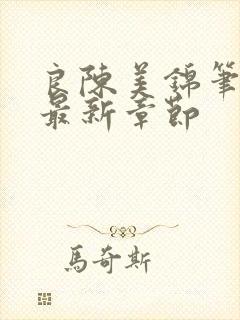 良陳美錦筆
最新章節
馬奇斯